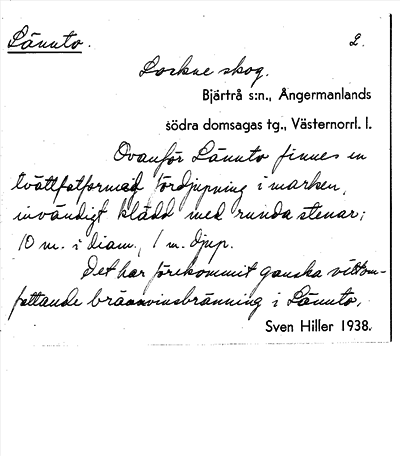 Lännto. 2.
Lockne skog.
Bjärtrå s:n., Ångermanlands
södra domsagas tg., Västernorrl. l.
Ovanför Lännto finnes en
tvättfatformad fördjupning i marken,
invändigt klädd med runda stenar;
10 m. i diam., 1 m. djup.
Det har förekommit ganska vittom-
fattande brännvinsbränning i Lännto.
Sven Hiller 1938.